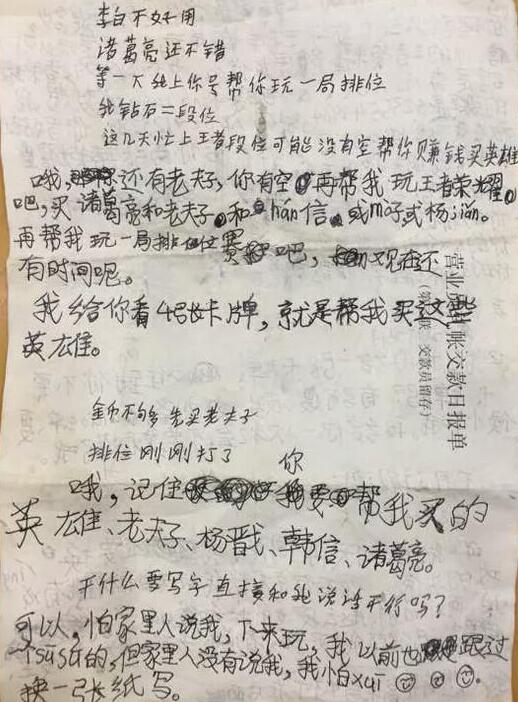 李白不好用
诸葛亮还不错
等一大我上你号帮你玩一局排位
我钻石二段位
这几天忙上王者段位可能没有空帮你赚钱买英雄
哦,还有老夫子,你有空再帮我玩王者荣耀
吧,买诸葛亮和老夫子和hán信或m子或杨jiǎn。
再帮我玩一局排位赛吧,现在还
有时间呢。
我给你看4张卡牌,就是帮我买这些
英雄。
金币不够多先买老夫子
排位刚刚打了
你
哦,记住要帮我买的
英雄、老夫子、杨戬、韩信、诸葛亮。
干什么要写字直接和我说话不行吗?
可以,怕家里人说我,下来玩,我以前也跟过
sūsū的,但家里人没有说我,我怕xuī
换一张纸写。
营业
帐交款日报单
交款员留存)